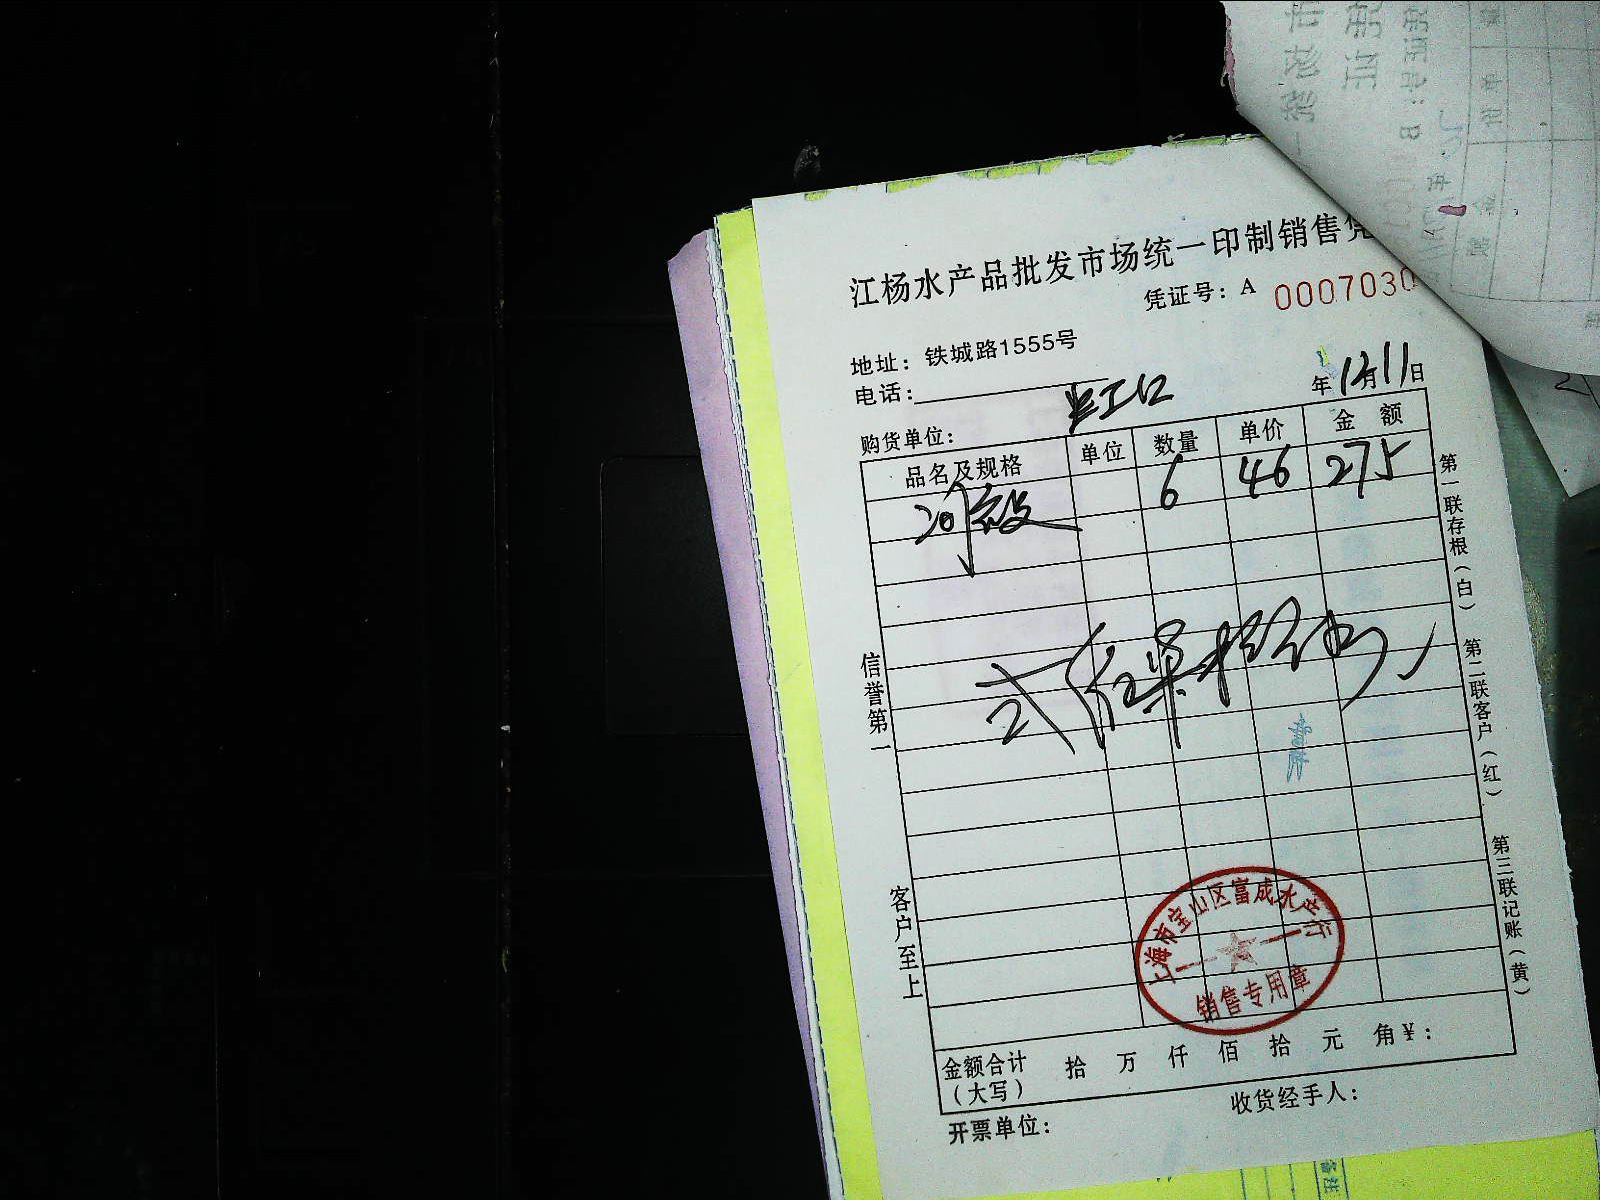 江杨水产品批发市场统一印制销售凭
凭证号：A 0007030
地址：铁城路1555号
电话：
年12月11日
购货单位： 虹口
品名及规格 单位 数量 单价 金额
6 46 275
信誉第一
客户至上
第一联存根（白）
第二联客户（红）
第三联记账（黄）
上海市宝山区富成水产行
销售专用章
金额合计（大写） 拾 万 仟 佰 拾 元 角 ¥：
开票单位：
收货经手人：